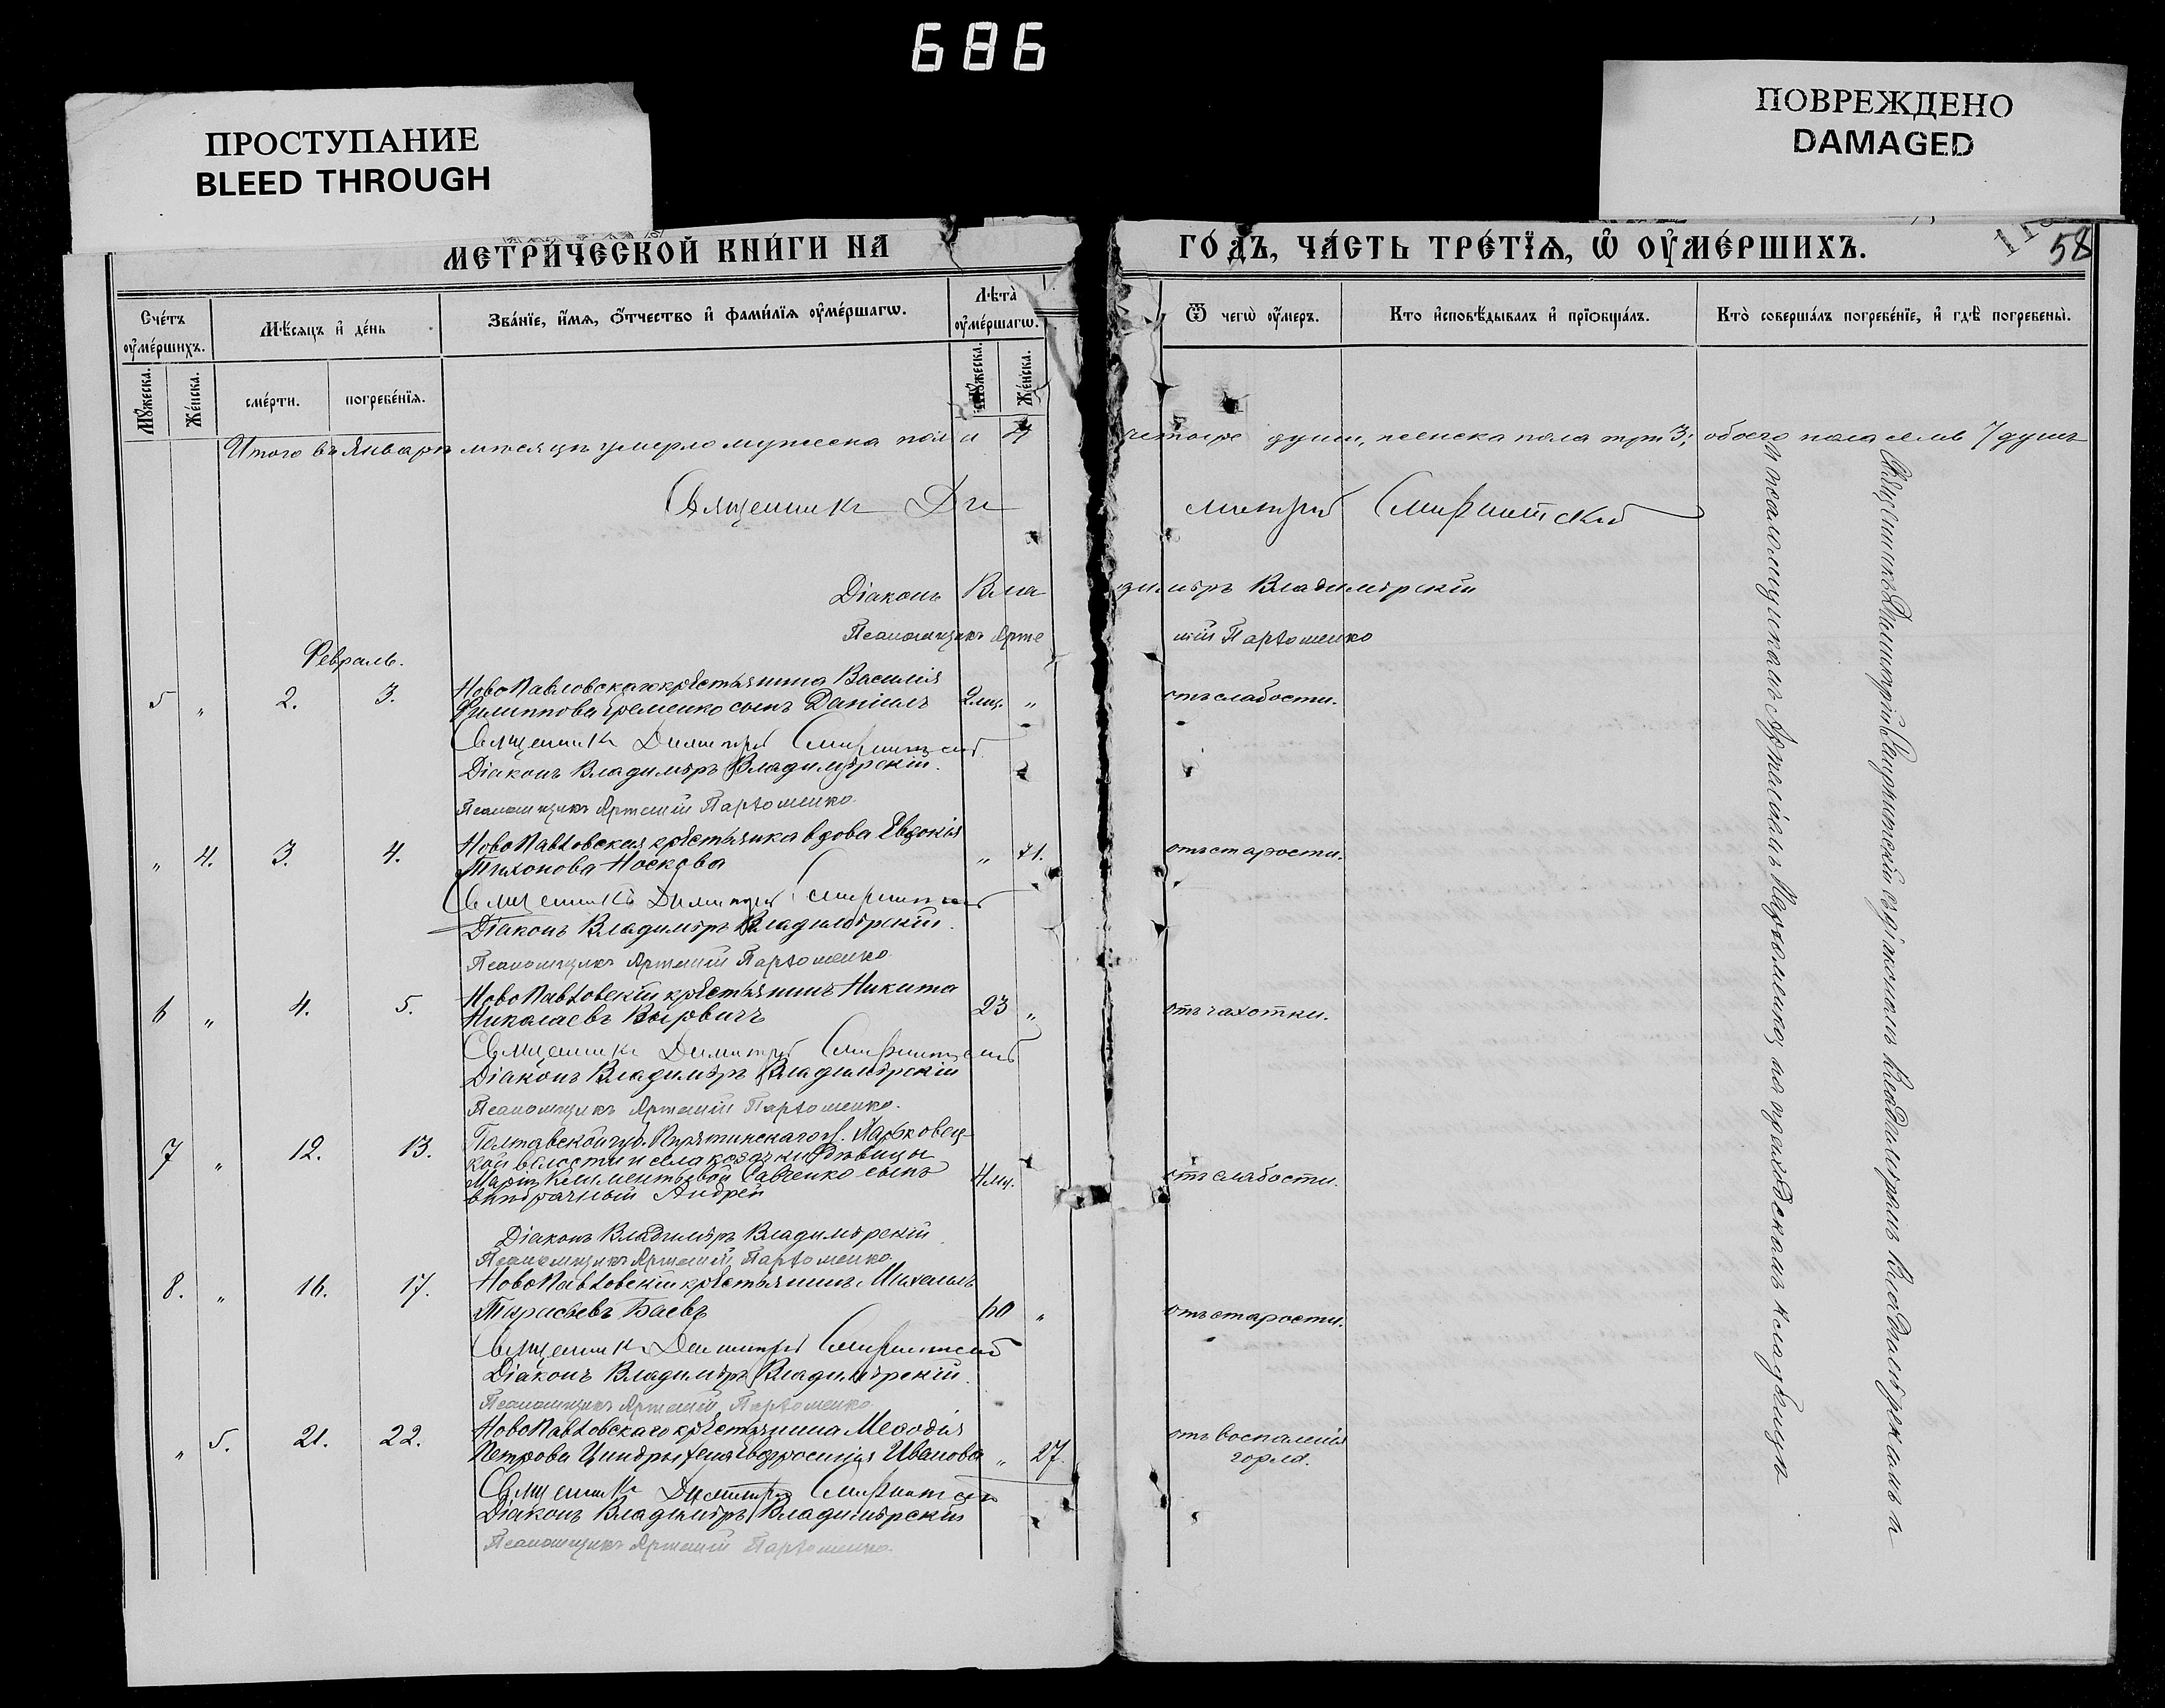 686
ПРОСТУПАНИЕ
BLEED THROUGH
ПОВРЕЖДЕНО
DAMAGED
МЕТРИ́ЧЕСКОЙ КНИ́ГИ НА ГО́ДЪ, ЧА́СТЬ ТРЕ́ТІѦ, Ѿ ОУ҆МЕ́РШИХЪ.
58
Сче́тъ оу҆ме́ршихъ.
Мѣ́сяцъ и҆ де́нь
Зва́нїе, и҆́мѧ, ѻ҆́тчество и҆ фами́лїѧ оу҆ме́ршагѡ.
Лѣта̀ оу҆ме́ршагѡ.
Ѿ чегѡ̀ оу҆́меръ.
Кто и҆сповѣ́дывалъ и҆ прїѡбща́лъ.
Кто̀ соверша́лъ погребе́нїе, и҆ гдѣ̀ погребены̀.
Мꙋ́жеска.
Же́нска.
сме́рти.
погребе́нїѧ.
Мꙋ́жеска.
Же́нска.
Итого въ Январѣ мѣсяцѣ умерло мужеска пола 4 четыре души, женска пола три 3; обоего пола семь 7 душъ
Священникъ Димитрій Смирнитскій
Діаконъ Владиміръ Владимірскій
Псаломщикъ Артемій Пархоменко
Февраль.
5 " 2. 3. НовоПавловскаго крестьянина Василія
Филиппова Еременко сынъ Даніилъ 2 мц. " отъ слабости.
Священникъ Димитрій Смирнитскій
Діаконъ Владиміръ Владимірскій.
Псаломщикъ Артемій Пархоменко.
" 4. 3. 4. НовоПавловская крестьянка вдова Евдокія
Тихонова Носкова " 71. отъ старости.
Священникъ Димитрій Смирнитскій
Діаконъ Владиміръ Владимірскій.
Псаломщикъ Артемій Пархоменко
6 " 4. 5. НовоПавловскій крестьянинъ Никита
Николаевъ 23 " отъ чахотки.
Священникъ Димитрій Смирнитскій
Діаконъ Владиміръ Владимірскій
Псаломщикъ Артемій Пархоменко.
7 " 12. 13. Полтавской губ. Пирятинскаго у. Харьковец-
кой волости и села козачки дѣвицы
Маріи Климентьевой Савченко сынъ 4 мц. отъ слабости.
внѣбрачный Андрей
Діаконъ Владиміръ Владимірскій.
Псаломщикъ Артемій Пархоменко
8. " 16. 17. НовоПавловскій крестьянинъ Михаилъ
Тарасьевъ Баевъ 60 " отъ старости.
Священникъ Димитрій Смирнитскій
Діаконъ Владиміръ Владимірскій.
Псаломщикъ Артемій Пархоменко
" 5. 21. 22. НовоПавловскаго крестьянина Меѳодія
Петрова Циндры жена Евфросинія Иванова " 27. отъ воспаленія
горла.
Священникъ Димитрій Смирнитскій
Діаконъ Владиміръ Владимірскій
Псаломщикъ Артемій Пархоменко.
Священникъ Димитрій Смирнитскій съ діакономъ Владиміромъ Владимірскимъ и
и псаломщикомъ Артеміемъ Пархоменко, на приходскомъ кладбищѣ